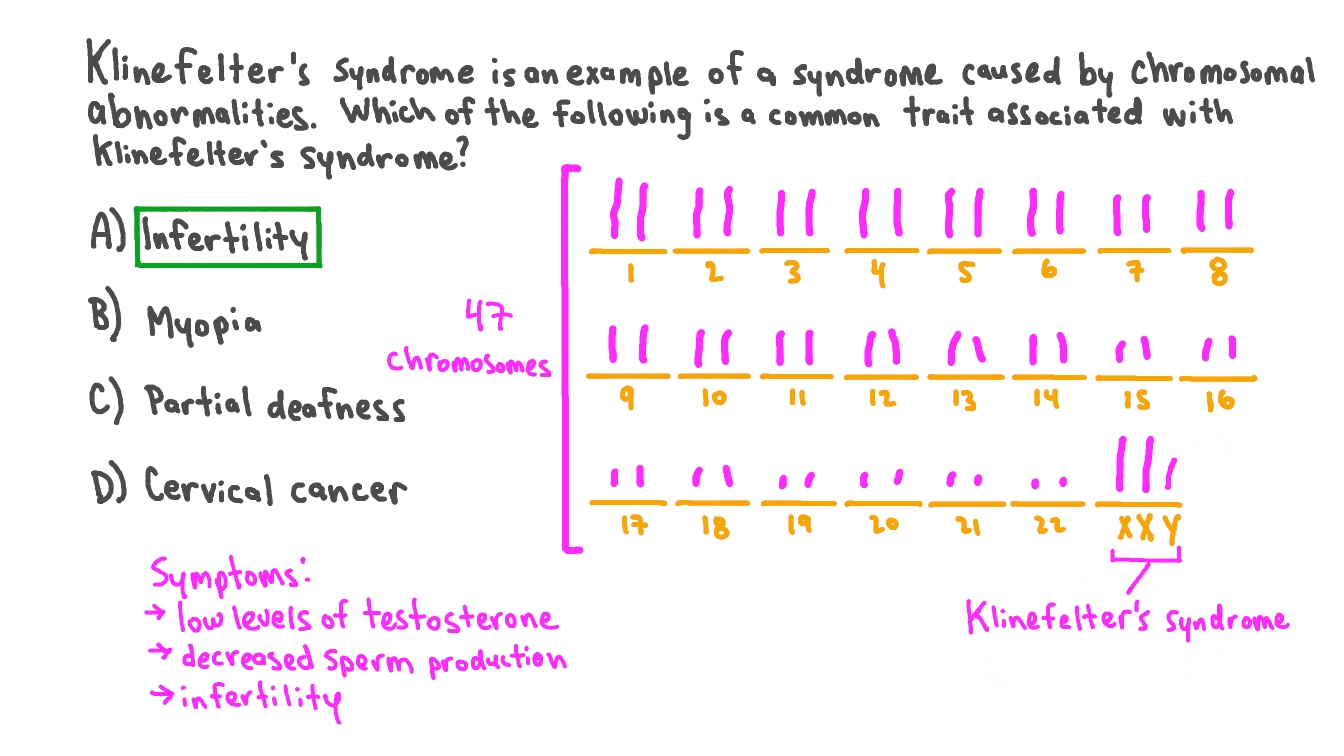 Klinefelter's syndrome is an example of a syndrome caused by chromosomal
abnormalities. Which of the following is a common trait associated with
Klinefelter's syndrome?
A) Infertility
B) Myopia
C) Partial deafness
D) Cervical cancer
47
chromosomes
1 2 3 4 5 6 7 8
9 10 11 12 13 14 15 16
17 18 19 20 21 22 X X Y
Klinefelter's syndrome
Symptoms:
→ low levels of testosterone
→ decreased sperm production
→ infertility